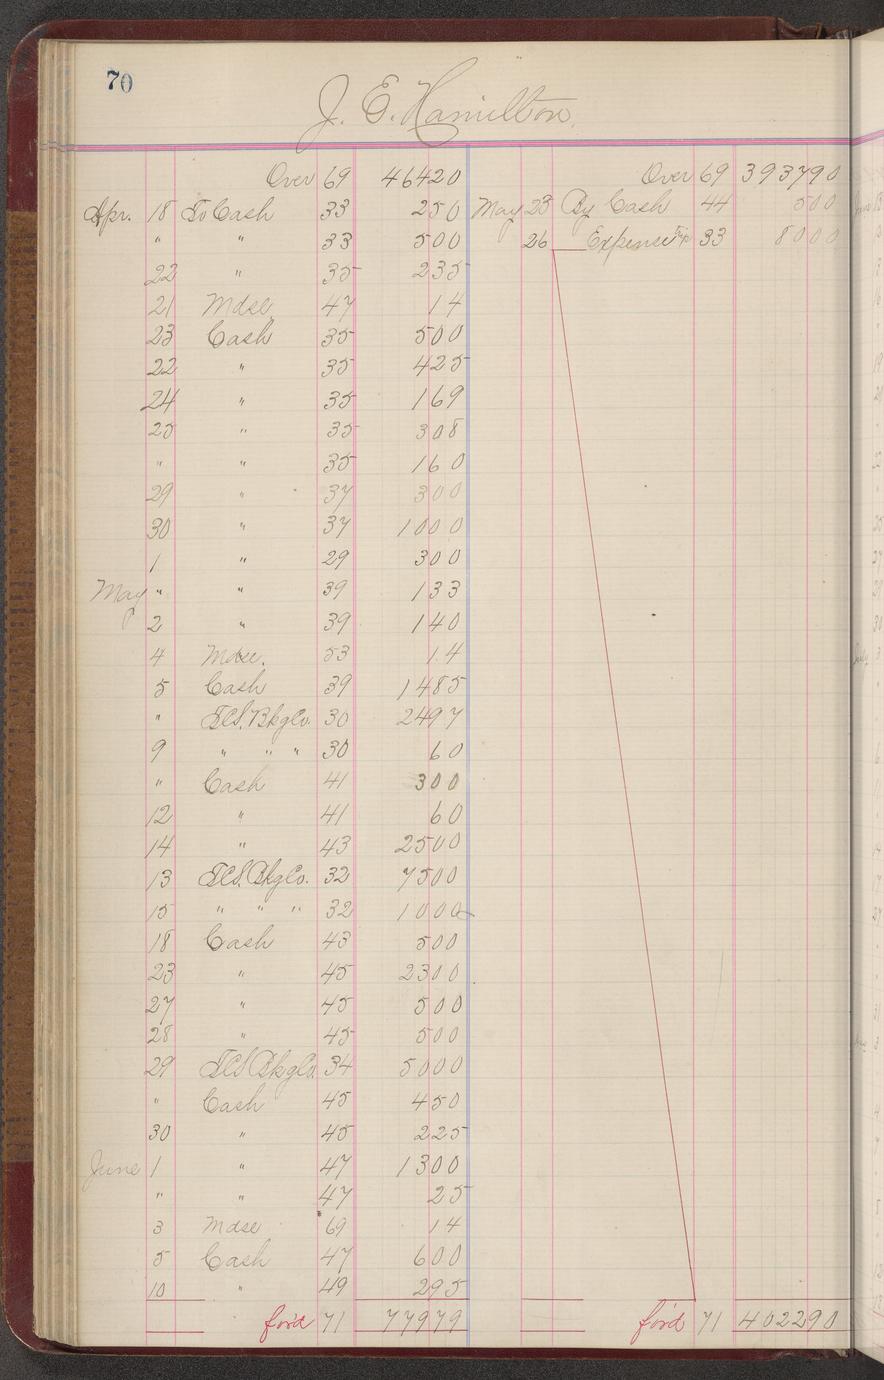 70
J. E. Hamilton.
Over 69 46420
Apr. 18 To Cash 33 250
" " 33 500
22 " 35 235
21 Mdse. 47 14
23 Cash 35 500
22 " 35 425
24 " 35 169
25 " 35 308
" " 35 160
29 " 37 300
30 " 37 1000
1 " 29 300
May " " 39 133
2 " 39 140
4 Mdse. 53 14
5 Cash 39 1485
" T.C.S. Bkg Co. 30 2497
9 " " " 30 60
" Cash 41 300
12 " 41 60
14 " 43 2500
13 T.C.S. Bkg Co. 32 7500
15 " " " 32 1000
18 Cash 43 500
23 " 45 2300
27 " 45 500
28 " 45 500
29 T.C.S. Bkg Co. 34 5000
" Cash 45 450
30 " 45 225
June 1 " 47 1300
" " 47 25
3 Mdse 69 14
5 Cash 47 600
10 " 49 295
for'd 71 77979
Over 69 393790
May 23 By Cash 44 500
26 Expense trip 33 8000
for'd 71 402290